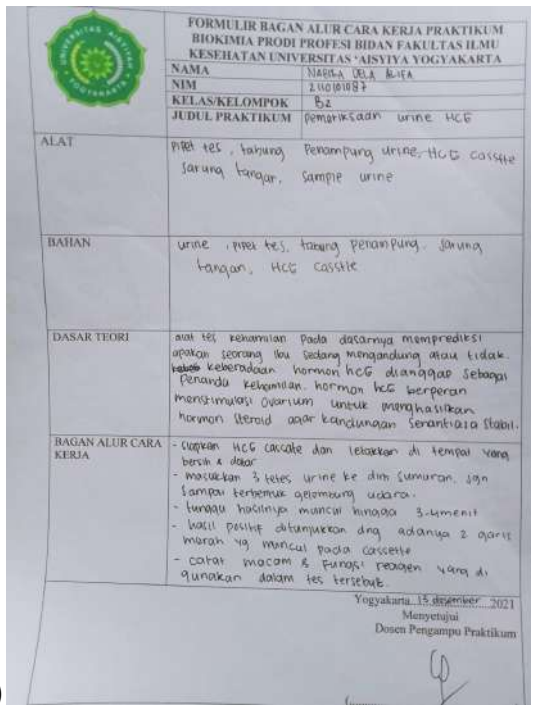 UNIVERSITAS 'AISYIYAH
YOGYAKARTA
FORMULIR BAGAN ALUR CARA KERJA PRAKTIKUM
BIOKIMIA PRODI PROFESI BIDAN FAKULTAS ILMU
KESEHATAN UNIVERSITAS 'AISYIYA YOGYAKARTA
NAMA NABILA DELA ALIFA
NIM 2110101087
KELAS/KELOMPOK B2
JUDUL PRAKTIKUM pemeriksaan urine HCG
ALAT
pipet tes, tabung penampung urine, HCG casstte
sarung tangan, sample urine
BAHAN
urine, pipet tes, tabung penampung, sarung
tangan, HCG casstte
DASAR TEORI
alat tes kehamilan pada dasarnya memprediksi
apakah seorang ibu sedang mengandung atau tidak.
keberadaan hormon hCG dianggap sebagai
penanda kehamilan. hormon hCG berperan
menstimulasi ovarium untuk menghasilkan
hormon steroid agar kandungan senantiasa stabil.
BAGAN ALUR CARA
KERJA
- siapkan HCG cassate dan letakkan di tempat yang
bersih & datar
- masukkan 3 tetes urine ke dlm sumuran. jgn
sampai terbentuk gelombung udara.
- tunggu hasilnya muncul hingga 3-4menit
- hasil positif ditunjukkan dng adanya 2 garis
merah yg muncul pada cassette
- catat macam & fungsi reagen yang di
gunakan dalam tes tersebut.
Yogyakarta 15 desember 2021
Menyetujui
Dosen Pengampu Praktikum